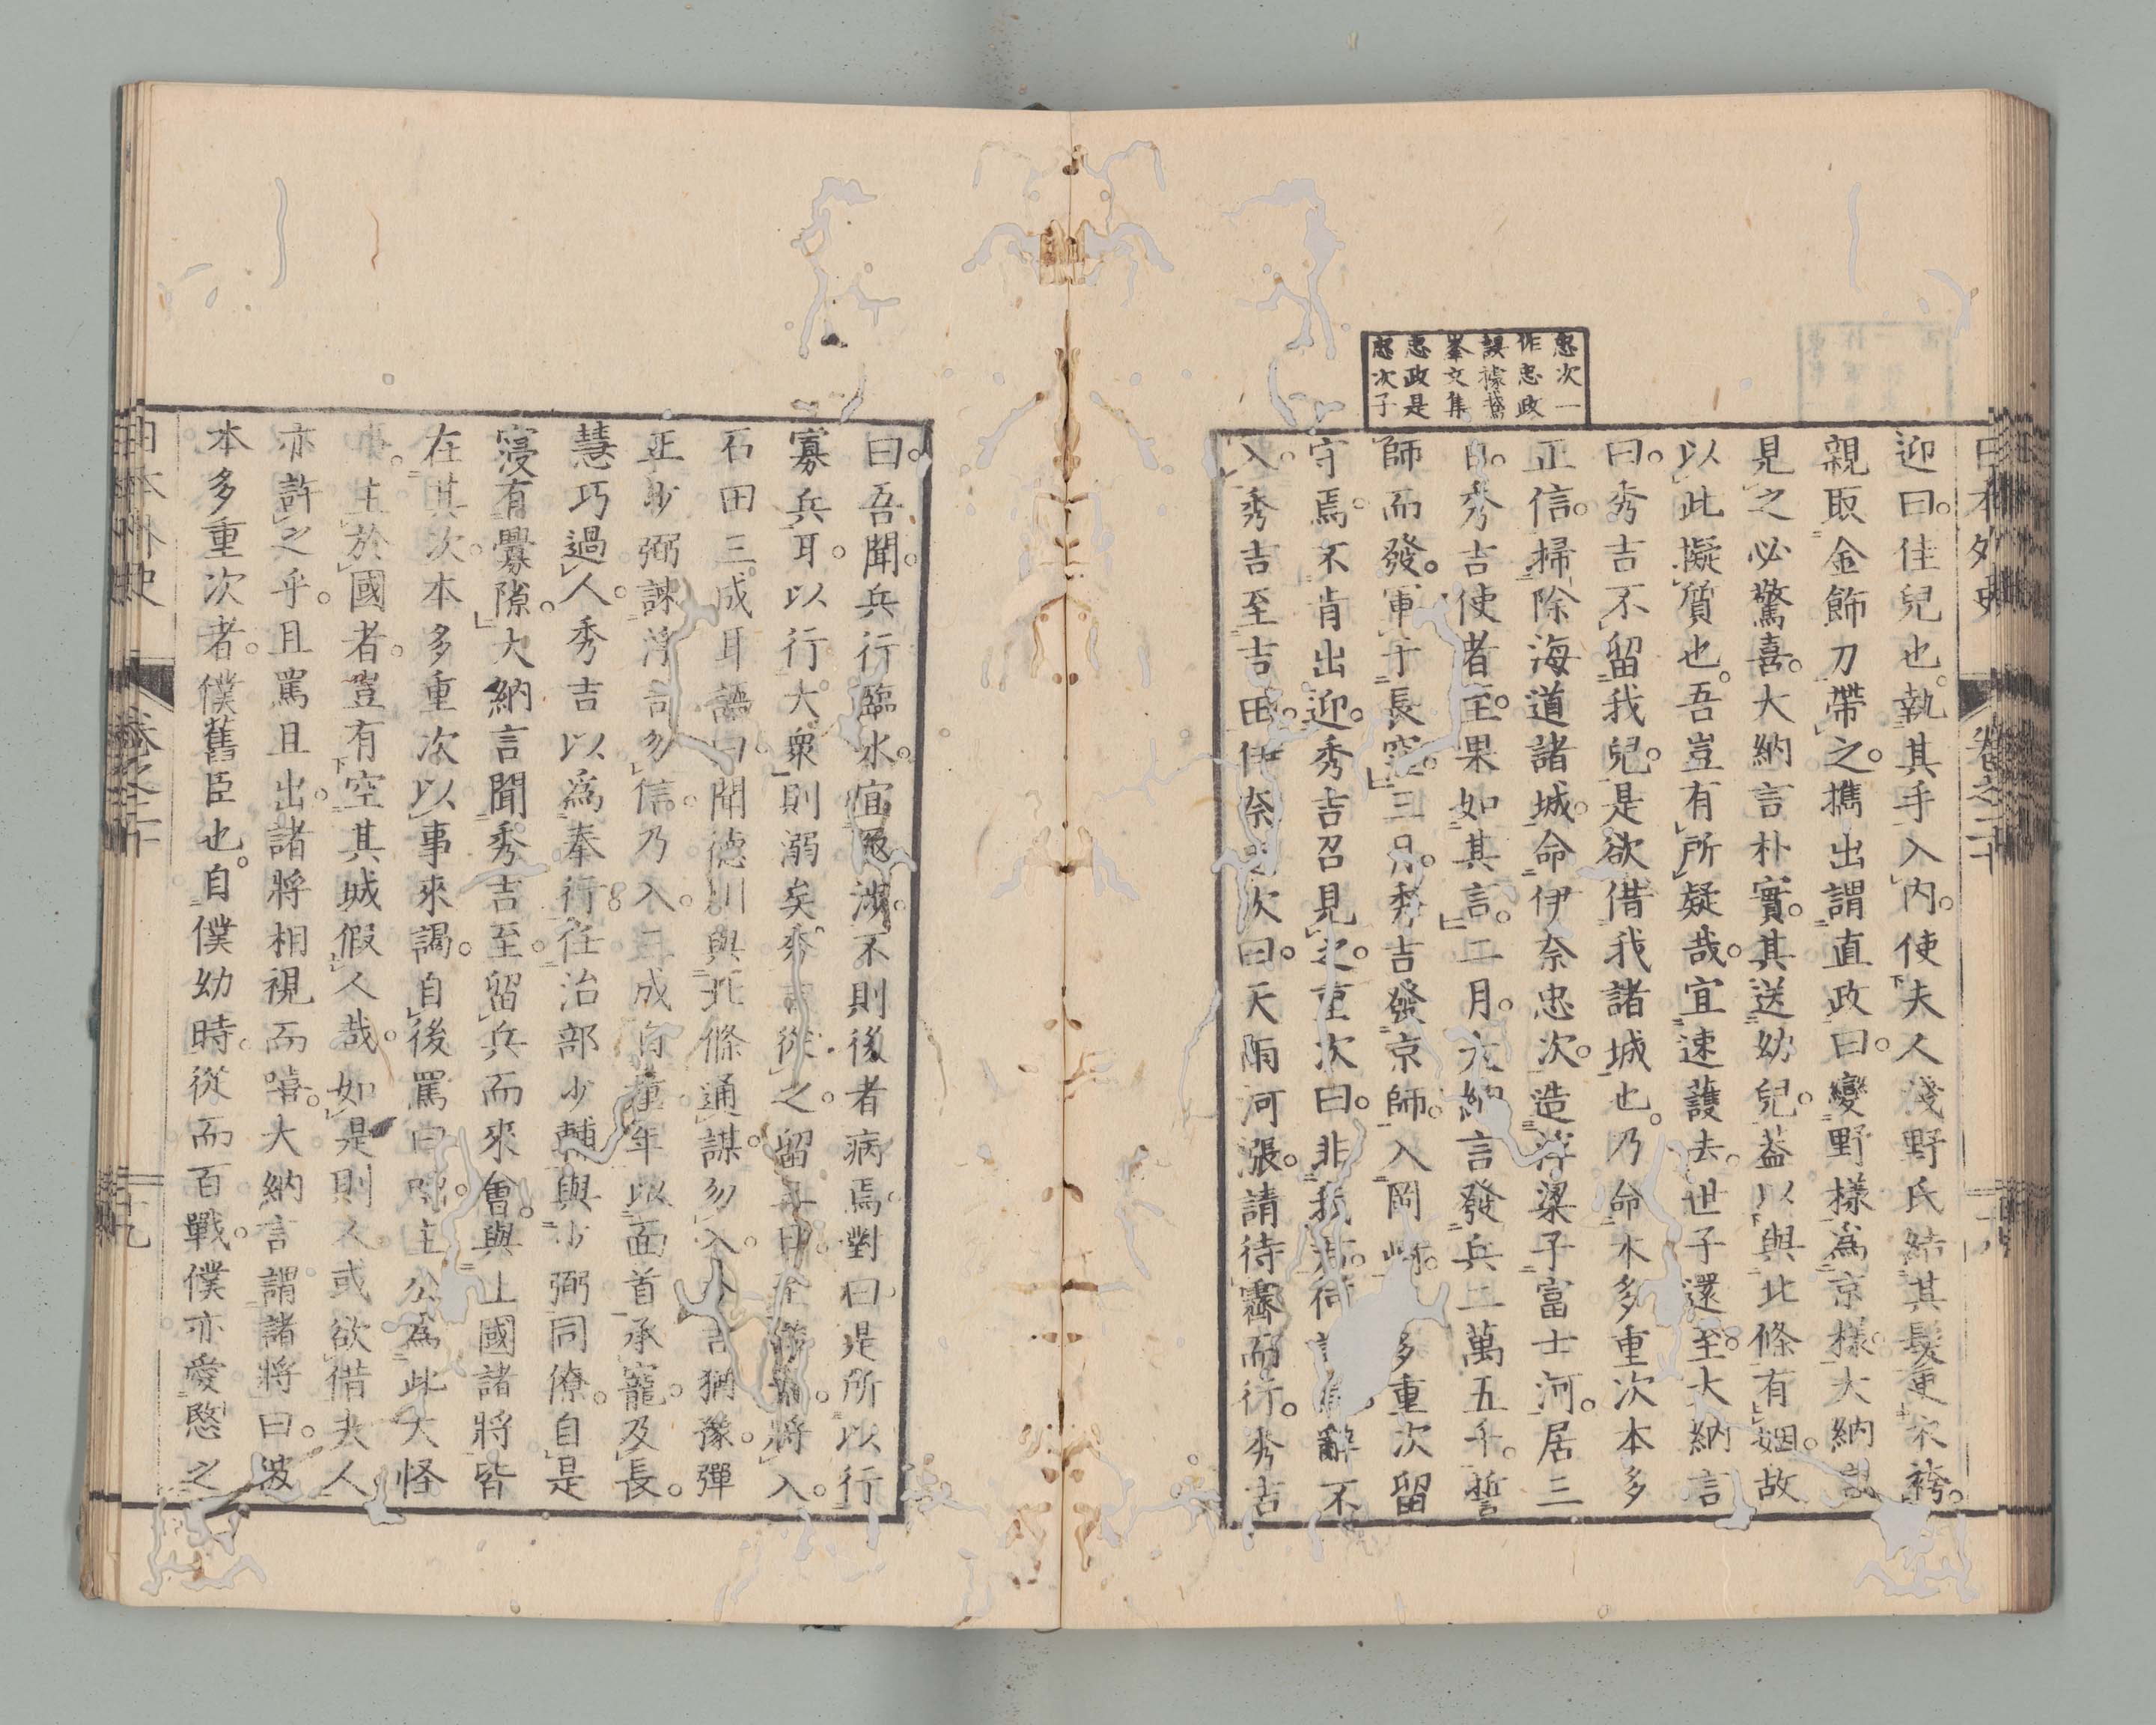 日本外史 卷之二十
迎曰。佳兒也。執其手入內。使夫人淺野氏結其髮更衣袴。
親取金飾刀帶之。攜出謂直政曰。變野樣為京樣。大納言
見之必驚喜。大納言朴實。其送幼兒。蓋以與北條有姻。故
以此擬質也。吾豈有所疑哉。宜速護去。世子還至。大納言
曰。秀吉不留我兒。是欲借我諸城也。乃命本多重次本多
正信。掃除海道諸城。命伊奈忠次。造浮梁子富士河。居三
日。秀吉使者至。果如其言。二月。大納言發兵二萬五千。誓
師而發。軍于長窪。三月。秀吉發京師。入岡崎。多重次留
守焉。不肯出迎。秀吉召見之。重次曰。非我 辭不
入。秀吉至吉田。伊奈 次曰。天雨河漲。請待霽而行。秀吉
忠次一
作忠政
誤據鵞
峯文集
忠政是
忠次子
曰。吾聞。兵行臨水。宜急涉。不則後者病焉。對曰。是所以行
寡兵耳。以行大衆。則溺矣。秀吉從之。留 日。至 將入。
石田三成耳語曰。聞德川與北條通謀。勿入。 吉猶豫。彈
正少弼諫 勿信。乃入。三成自童年以面首承寵。及長。
慧巧過人。秀吉以為奉行。任治部少輔。與少弼同僚。自是
寖有釁隙。大納言聞秀吉至。留兵而來會。與上國諸將皆
在其次。本多重次以事來謁。自後罵曰。 主公為此大怪
事。主於國者。豈有空其城假人哉。如是則人或欲借夫人
亦許之乎。且罵且出。諸將相視而嘻。大納言謂諸將曰。彼
本多重次者。僕舊臣也。自僕幼時。從而百戰。僕亦愛愍之
日本外史 卷之二十 十九